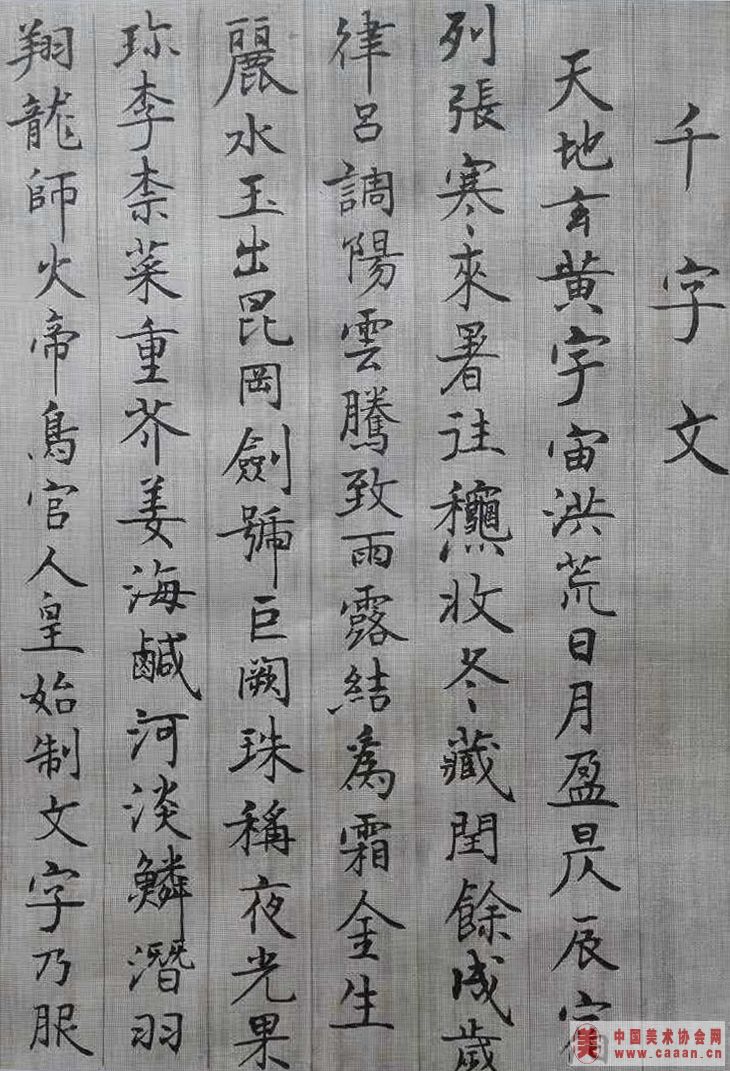 千字文
天地玄黄宇宙洪荒日月盈昃辰宿
列張寒來暑往龝收冬藏閏餘成歲
律呂調陽雲騰致雨露結為霜金生
麗水玉出昆岡劍號巨闕珠稱夜光果
珎李柰菜重芥姜海鹹河淡鱗潛羽
翔龍師火帝鳥官人皇始制文字乃服
美 中国美术协会网
www.caaan.cn